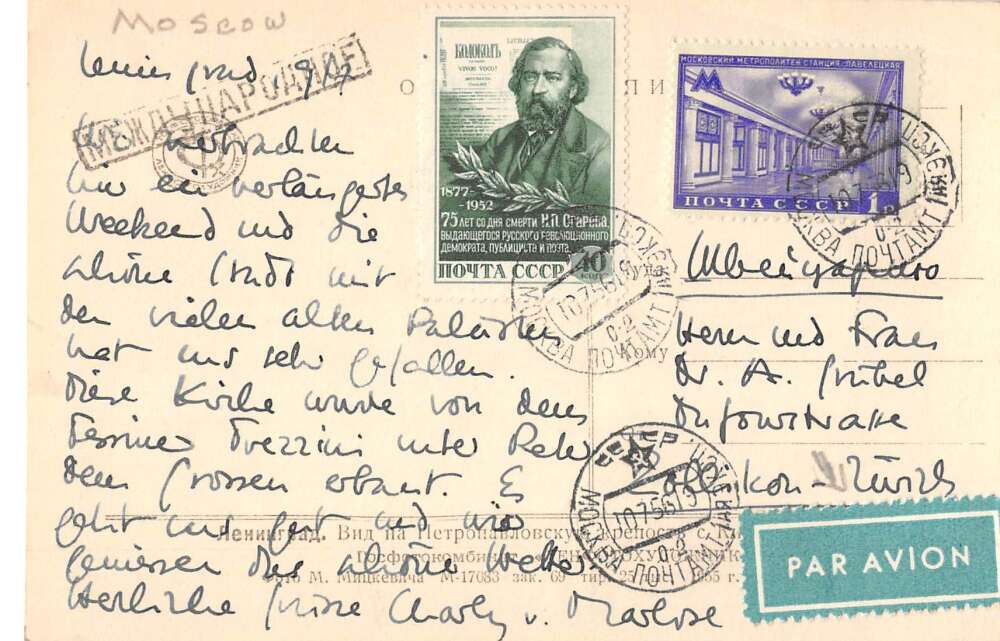 Moscow
Leningrad
МЕЖДУНАРОДНОЕ
Wir verbrachten
hier ein verlängertes
Weekend und die
schöne Stadt mit
den vielen alten Palästen
hat uns sehr gefallen.
Diese Kirche wurde von dem
Tessiner Trezzini unter Peter
dem Grossen erbaut. Es
geht uns gut und wir
geniessen das schöne Wetter
Herzliche Grüsse Charly u. Marlose
КОЛОКОЛЪ
VIVOS VOCO!
1877-
1952
75 ЛЕТ СО ДНЯ СМЕРТИ Н.П. ОГАРЕВА,
ВЫДАЮЩЕГОСЯ РУССКОГО РЕВОЛЮЦИОННОГО
ДЕМОКРАТА, ПУБЛИЦИСТА И ПОЭТА.
ПОЧТА СССР 40
КОП.
МОСКОВСКИЙ МЕТРОПОЛИТЕН СТАНЦИЯ „ПАВЕЛЕЦКАЯ"
М
ПОЧТА СССР 1 Р
МОСКВА ПОЧТАМТ
МОСКВА ПОЧТАМТ
МОСКВА ПОЧТАМТ
Куда
Швейцарию
Кому
Herrn und Frau
Dr. A. Grübel
Dufourstrasse
Zollikon - Zürich
PAR AVION
Ленинград. Вид на Петропавловскую крепость с
Фото М. Мицкевича М-17083 зак. 69 тир. 25 1955 г.